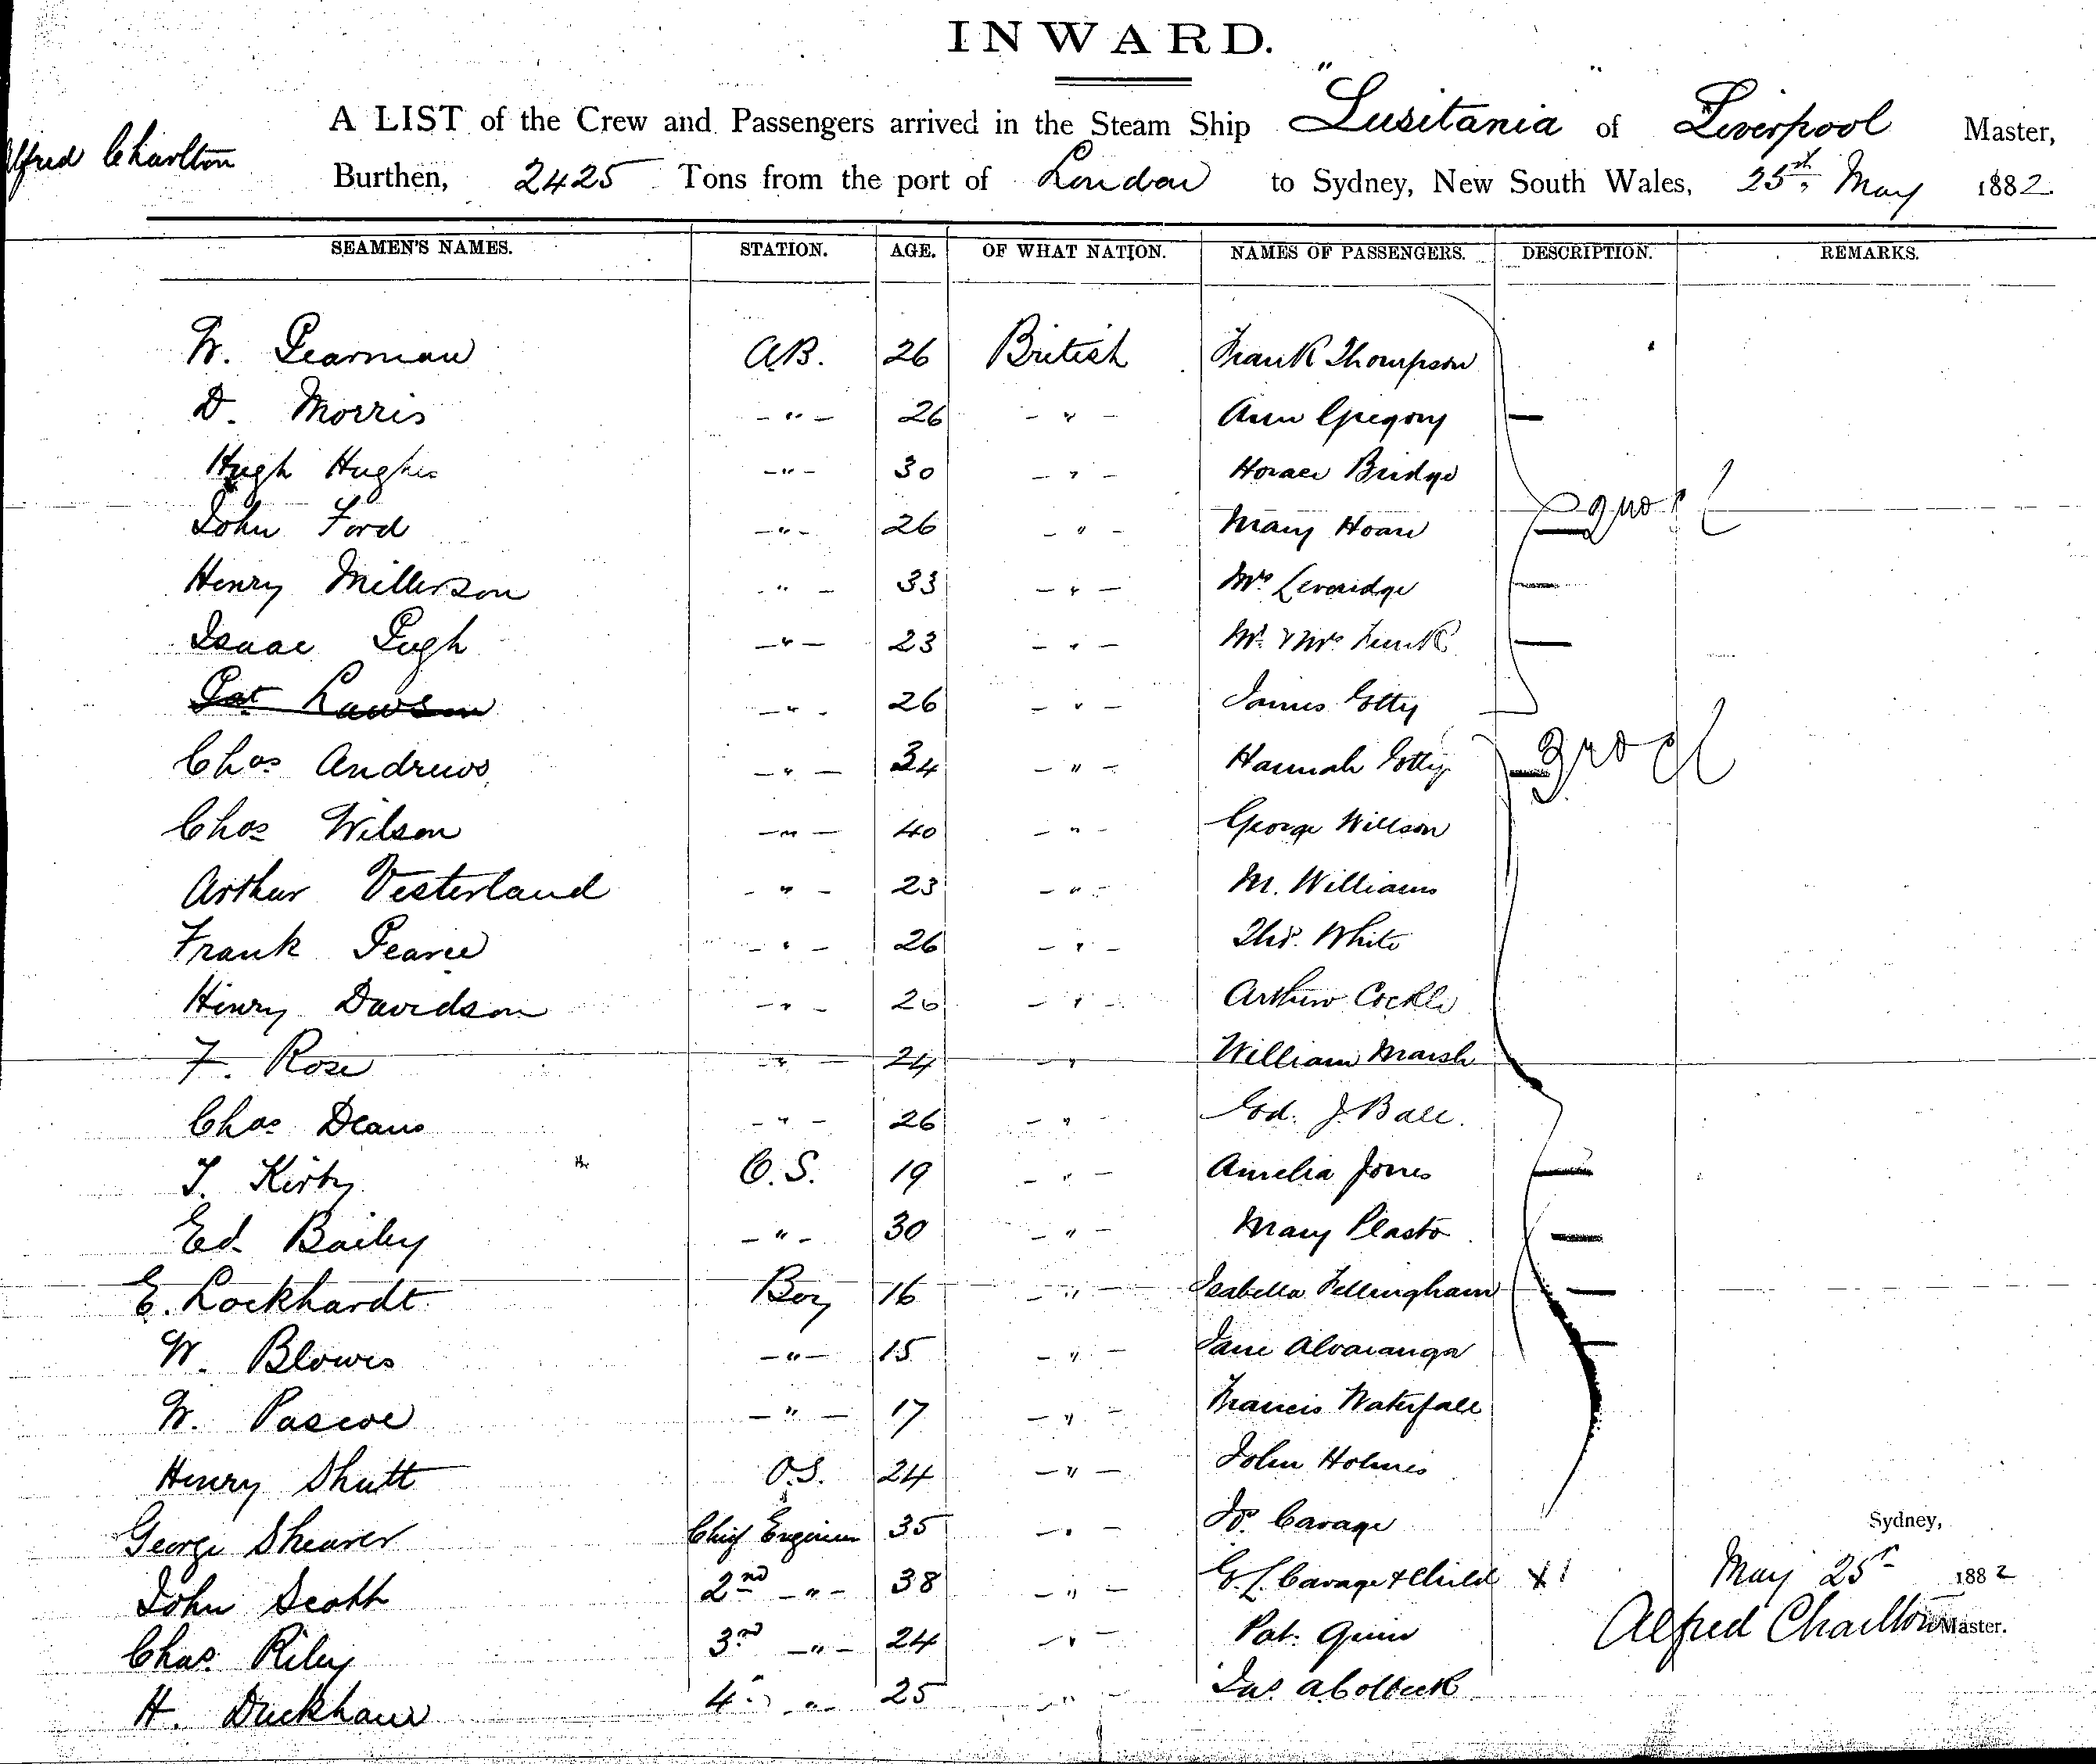 INWARD.
A LIST of the Crew and Passengers arrived in the Steam Ship "Lusitania" of Liverpool Master,
Alfred Charlton
Burthen, 2425 Tons from the port of London to Sydney, New South Wales, 25th May 1882
SEAMEN'S NAMES. STATION. AGE. OF WHAT NATION. NAMES OF PASSENGERS. DESCRIPTION. REMARKS.
W. Pearman A.B. 26 British Frank Thompson
D. Morris -"- 26 -"- Ann Gregory -
Hugh Hughes -"- 30 -"- Horace Bridge
John Ford -"- 26 -"- Mary Hoare - 2nd cl
Henry Millerson " - 33 -"- Mrs Leveridge -
Isaac Pugh -"- 23 -"- Mr & Mrs -
Pat Lawson -"- 26 -"- James
Chas Andrews -"- 34 -"- Hannah - 3rd cl
Chas Wilson -"- 40 -"- George Willson
Arthur Vesterland -"- 23 -"- M. Williams
Frank Pearce -"- 26 -"- Thos. White
Henry Davidson -"- 26 -"- Arthur Cockle
F. Rose -"- 24 -"- William Marsh
Chas Deans -"- 26 -" J. Ball.
T. Kirby O.S. 19 -"- Amelia Jones -
Ed. Bailey -"- 30 -"- Mary Plasto -
E. Lockhardt Boy 16 -"- Isabella Fellingham -
W. Blowes -"- 15 -"- Jane Alvaranga -
W. Pascoe -"- 17 -"- Francis Waterfall
Henry Shutt O.S. 24 -"- John Holmes
George Shearer Chief Engineer 35 -"- Cavage
Sydney,
John Scott 2nd -"- 38 -"- G. L. Cavage & Child X 1 May 25th 1882
Chas. Riley 3rd -"- 24 -"- Pat. Quin Alfred Charlton Master.
H. Duckham 4th " 25 -"- Jas. A Colbeck